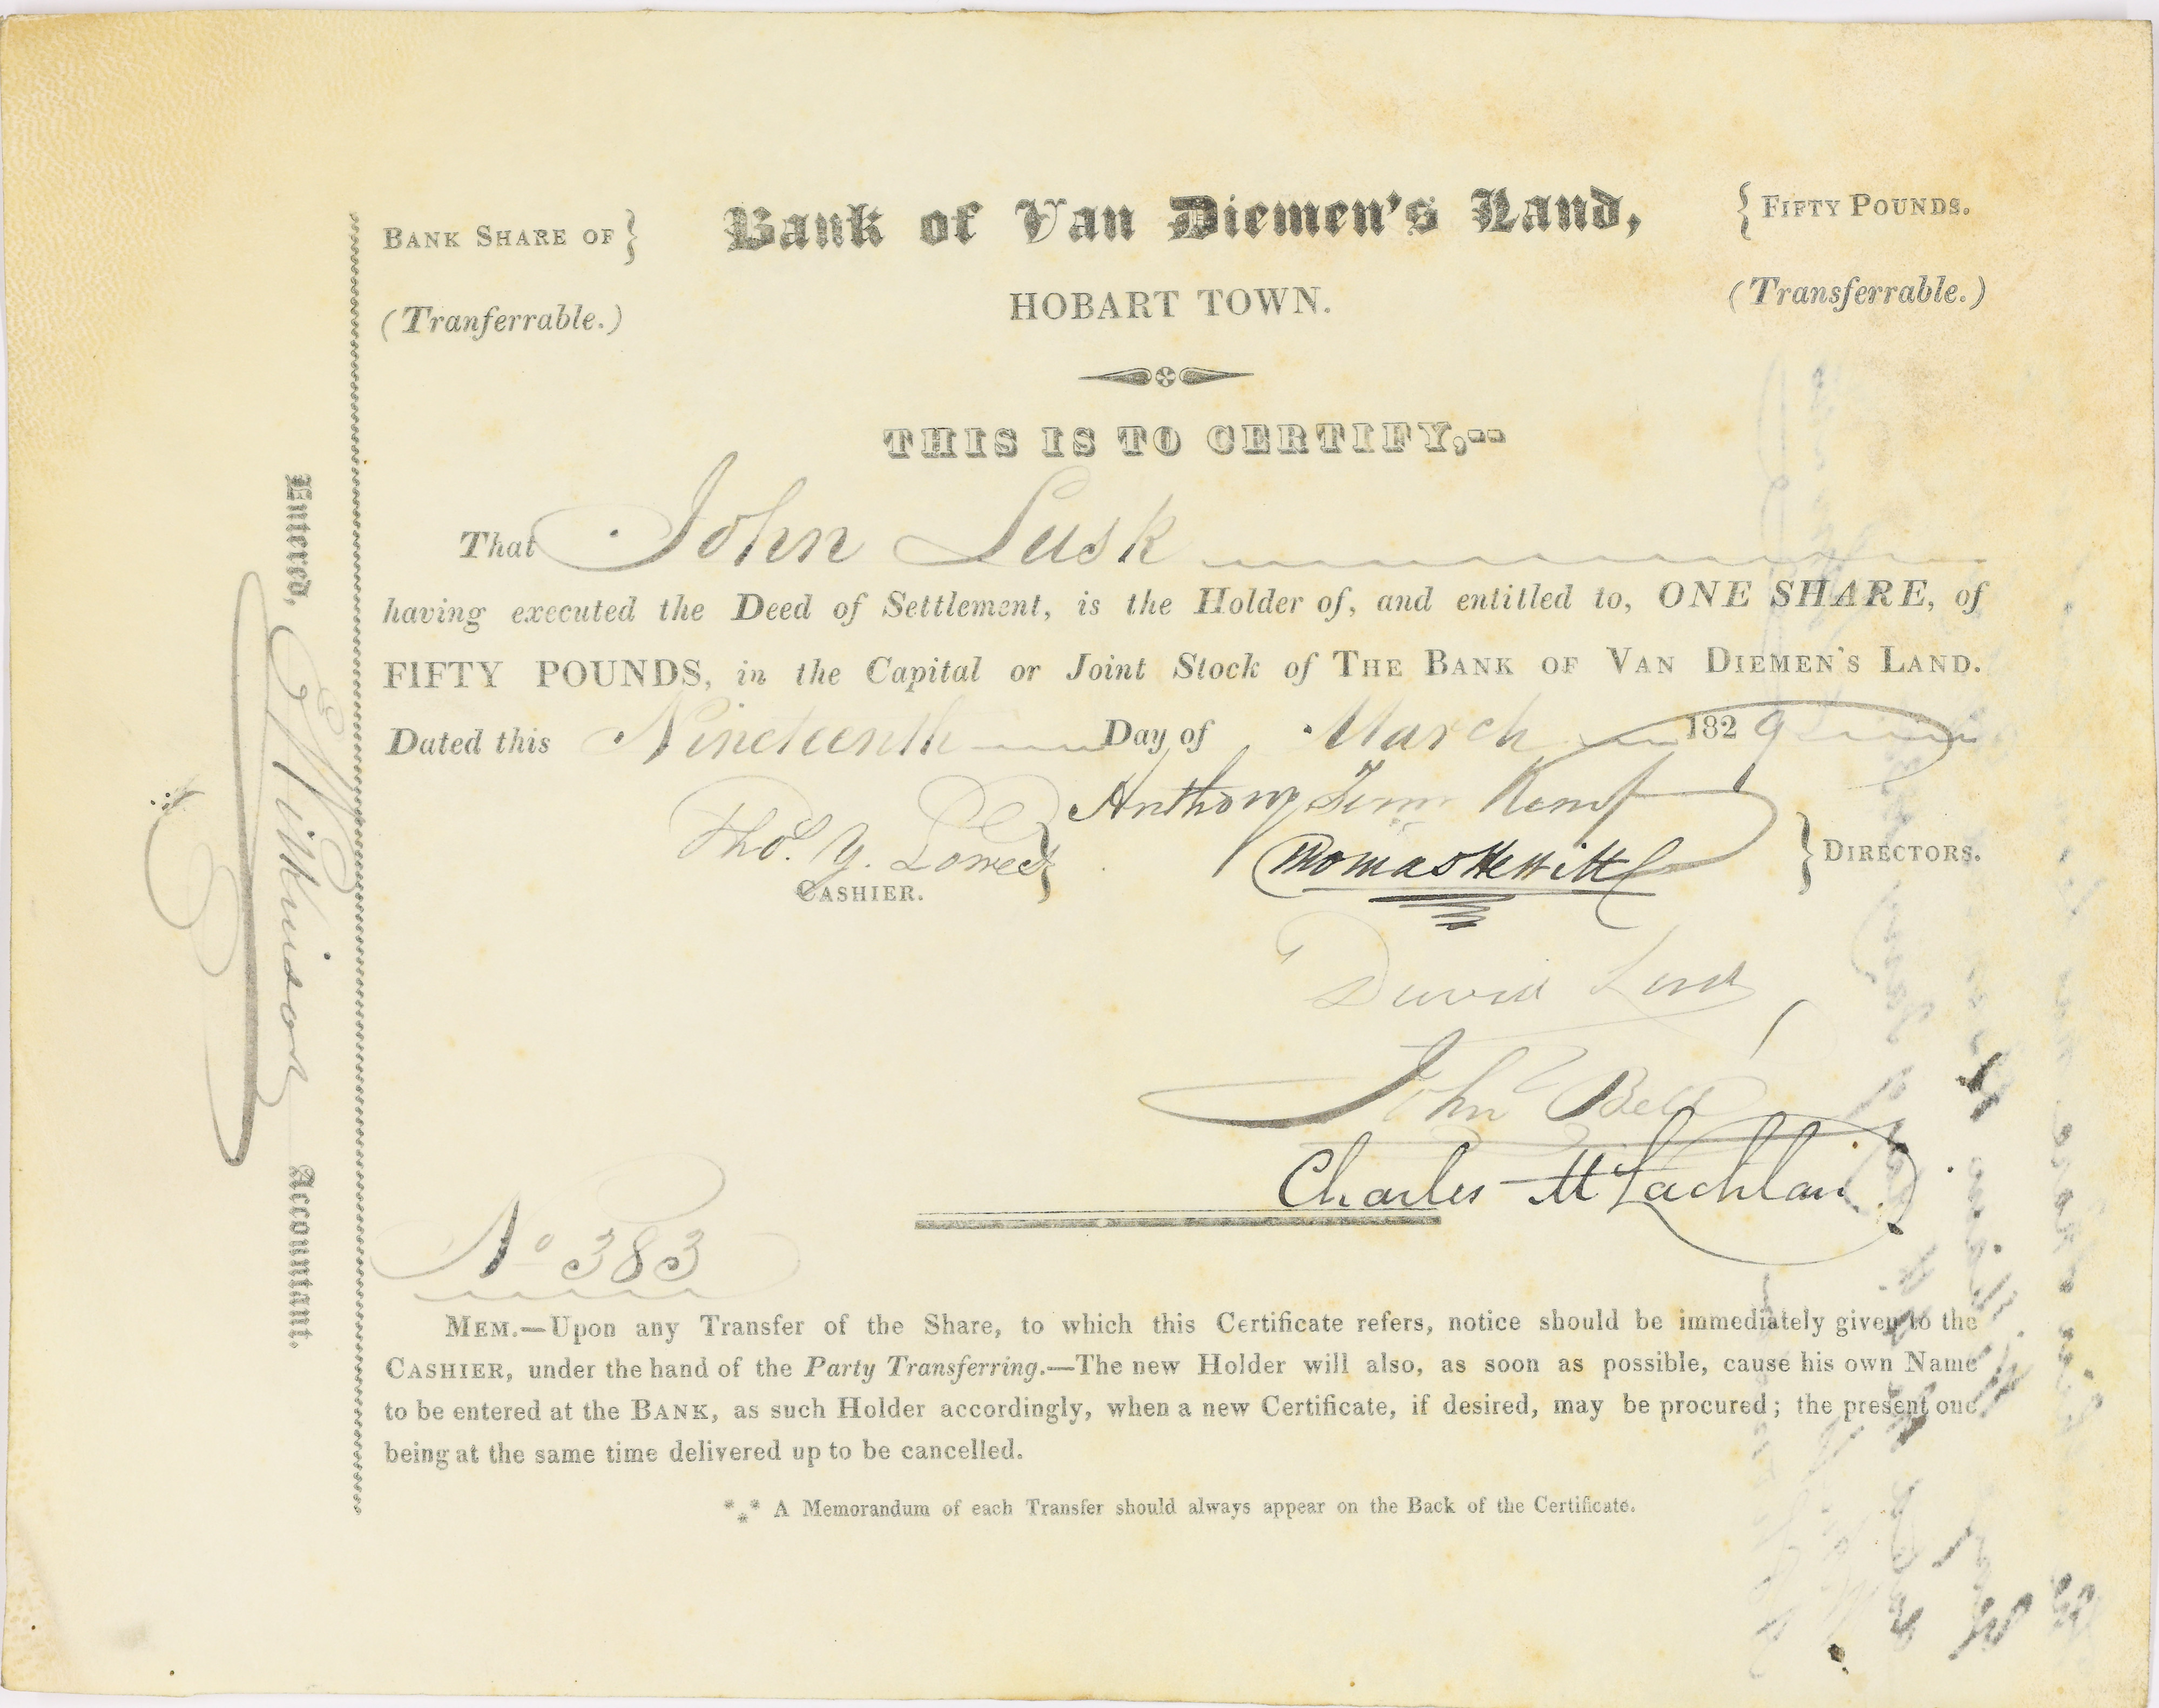 BANK SHARE OF }
(Tranferrable.)
Bank of Van Diemen's Land,
HOBART TOWN.
{ FIFTY POUNDS.
(Transferrable.)
THIS IS TO CERTIFY,--
That John Lusk
having executed the Deed of Settlement, is the Holder of, and entitled to, ONE SHARE, of
FIFTY POUNDS, in the Capital or Joint Stock of THE BANK OF VAN DIEMEN'S LAND.
Dated this Nineteenth Day of March 1829
Thos. Y. Lowes }
CASHIER.
Anthony Fenn Kemp
Thomas Hewitt
} DIRECTORS.
David Lord
John Bell
Charles McLachlan
No 383
MEM.—Upon any Transfer of the Share, to which this Certificate refers, notice should be immediately given to the
CASHIER, under the hand of the Party Transferring.—The new Holder will also, as soon as possible, cause his own Name
to be entered at the BANK, as such Holder accordingly, when a new Certificate, if desired, may be procured; the present one
being at the same time delivered up to be cancelled.
*** A Memorandum of each Transfer should always appear on the Back of the Certificate.
Entered, Wilkinson Accountant.